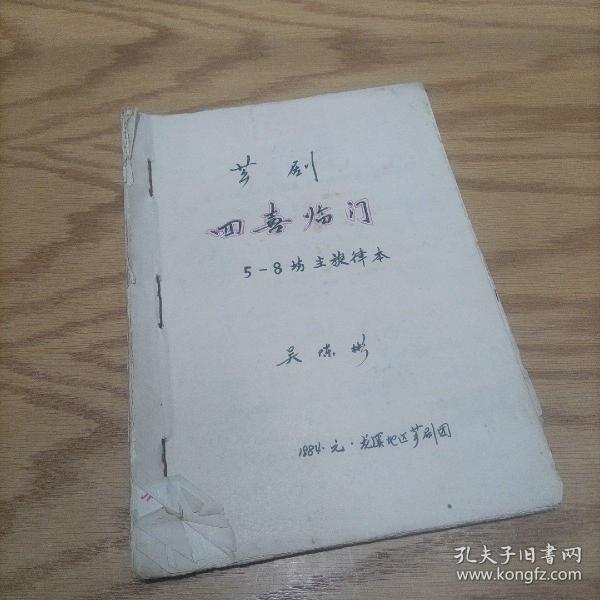 芗剧
四喜临门
5-8场主旋律本
吴陈彬
1984.元.龙溪地区芗剧团
孔夫子旧書网
www.kongfz.com